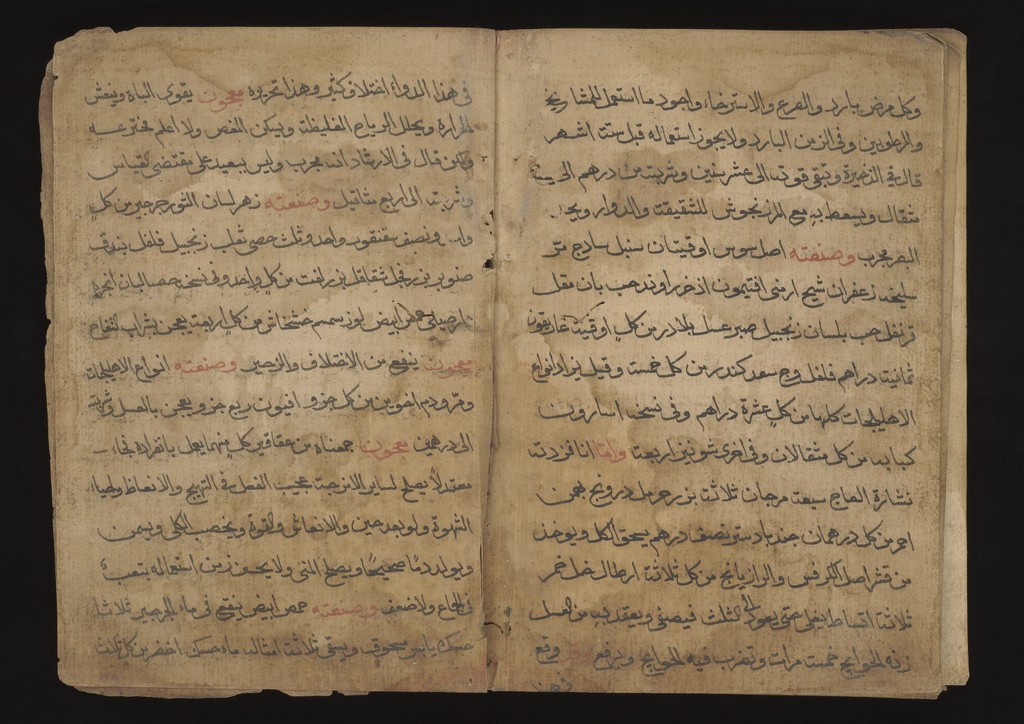 وكل مرض بارد والصرع والاسترخاء واجود ما استعمل للمشايخ
والمرطوبين وفي الزمن البارد ولا يجوز استعماله قبل ستة اشهر
قال في الذخيرة وتبقى قوته الى عشر سنين وشربته من درهم الى
مثقال ويسعط به مع المرزنجوش للشقيقة والدوار
البصر مجرب وصنعته اصل سوس اوقيتان سنبل ساذج مر
سليخه زعفران شيح ارمني افتيمون اذخر راوند حب بان مقل
قرنفل حب بلسان زنجبيل صبر عسل بلادر من كل اوقية غاريقون
ثمانية دراهم فلفل وج سعد كندر من كل خمسة وقيل يزاد انواع
الاهليلجات كلها من كل عشرة دراهم وفي نسخه اسارون
كبابه من كل مثقالان وفي اخرى شونيز اربعة واما انا فزدته
نشارة العاج سبعة مرجان ثلاثة بزر حرمل درونج بهمن
احمر من كل درهمان جندبادستر نصف درهم يسحق الكل ويوخذ
من قشر اصل الكرفس والرازيانج من كل ثلاثة ارطال خل خمر
ثلاثة اقساط يغلى حتى يعود الى الثلث فيصفى ويعقد به من العسل
زنة الحوايج خمسة مرات وتضرب فيه الحوايج ويرفع وقع
في هذا
في هذا الدواء اختلاق كثير وهذا تحريره معجون يقوى الباه وينعش
الحرارة ويحلل الرياح الغليظة ويسكن المغص ولا اعلم مخترعه
ولكن قال في الارشاد انه مجرب وليس ببعيد على مقتضى القياس
وشربته الى اربع مثاقيل وصنعته زهر لسان الثور جرجير من كل
واحد ونصف سقنقور واحد وثلث خصى ثعلب زنجبيل فلفل بندق
صنوبر بزر فجل شقاقل بزر لفت من كل واحد وفي نسخه حصالبان انجره
دارصيني حمص ابيض لوز سمسم خشخاش من كل اربعة يعجن بشراب التفاح
معجون ينفع من الاختلاف والزحير وصنعته انواع الاهليلجات
ومر ودم اخوين من كل جزو افيون ربع جزو يعجن بالعسل وشربته
الى درهمين معجون جمعناه من عقاقير كل منها يعمل بانفراده فجاء
معتدلا يصلح لساير الامزجة عجيب الفعل في التهييج والانعاظ واحياء
الشهوة ولو بعد حين والانعاش والقوة ويخصب الكلى ويسمن
ويولد دما صحيحا ويصلح المنى ولا يحس زمن استعماله بتعب
في الجماع ولا ضعف وصنعته حمص ابيض ينقع في ماء الجرجير ثلاثا
حسك يابس سحوق ويسقى ثلاثة امثاله ماء حسك اخضر من كل ثلاث